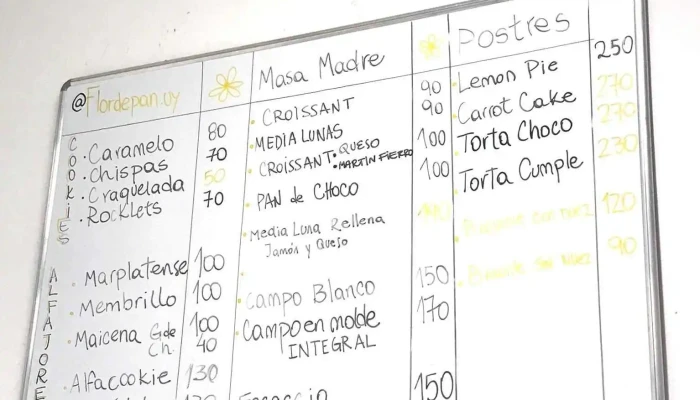 @Flordepan.uy
COOKIES
Caramelo 80
Chispas 70
Craquelada 50
Rocklets 70
ALFAJORE
Marplatense 100
Membrillo 100
Maicena Gde 100
Ch. 40
Alfacookie 130
Masa Madre
CROISSANT 90
MEDIA LUNAS 90
CROISSANT: QUESO 100
MARTIN FIERRO
PAN de CHOCO 100
Media Luna Rellena
Jamón y Queso
Campo Blanco 150
Campo en molde 170
INTEGRAL
150
Postres
Lemon Pie 250
Carrot Cake
Torta Choco
Torta Cumple 230
120
90